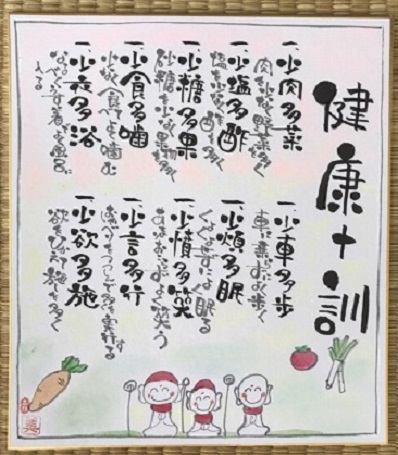 健康十訓
一、少肉多菜
肉を少なく野菜を多く
一、少塩多酢
塩を少なく酢を多く
一、少糖多果
砂糖を少なく果物を多く
一、少食多噛
少なく食べてよく噛む
一、少衣多浴
なるべくうす着でよく風呂に
入る
一、少車多歩
車に乗らずによく歩く
一、少煩多眠
くよくよせずによく眠る
一、少憤多笑
よく笑う
一、少言多行
おしゃべりをつつしんで多く実行する
一、少欲多施
欲をひかえて施を多く